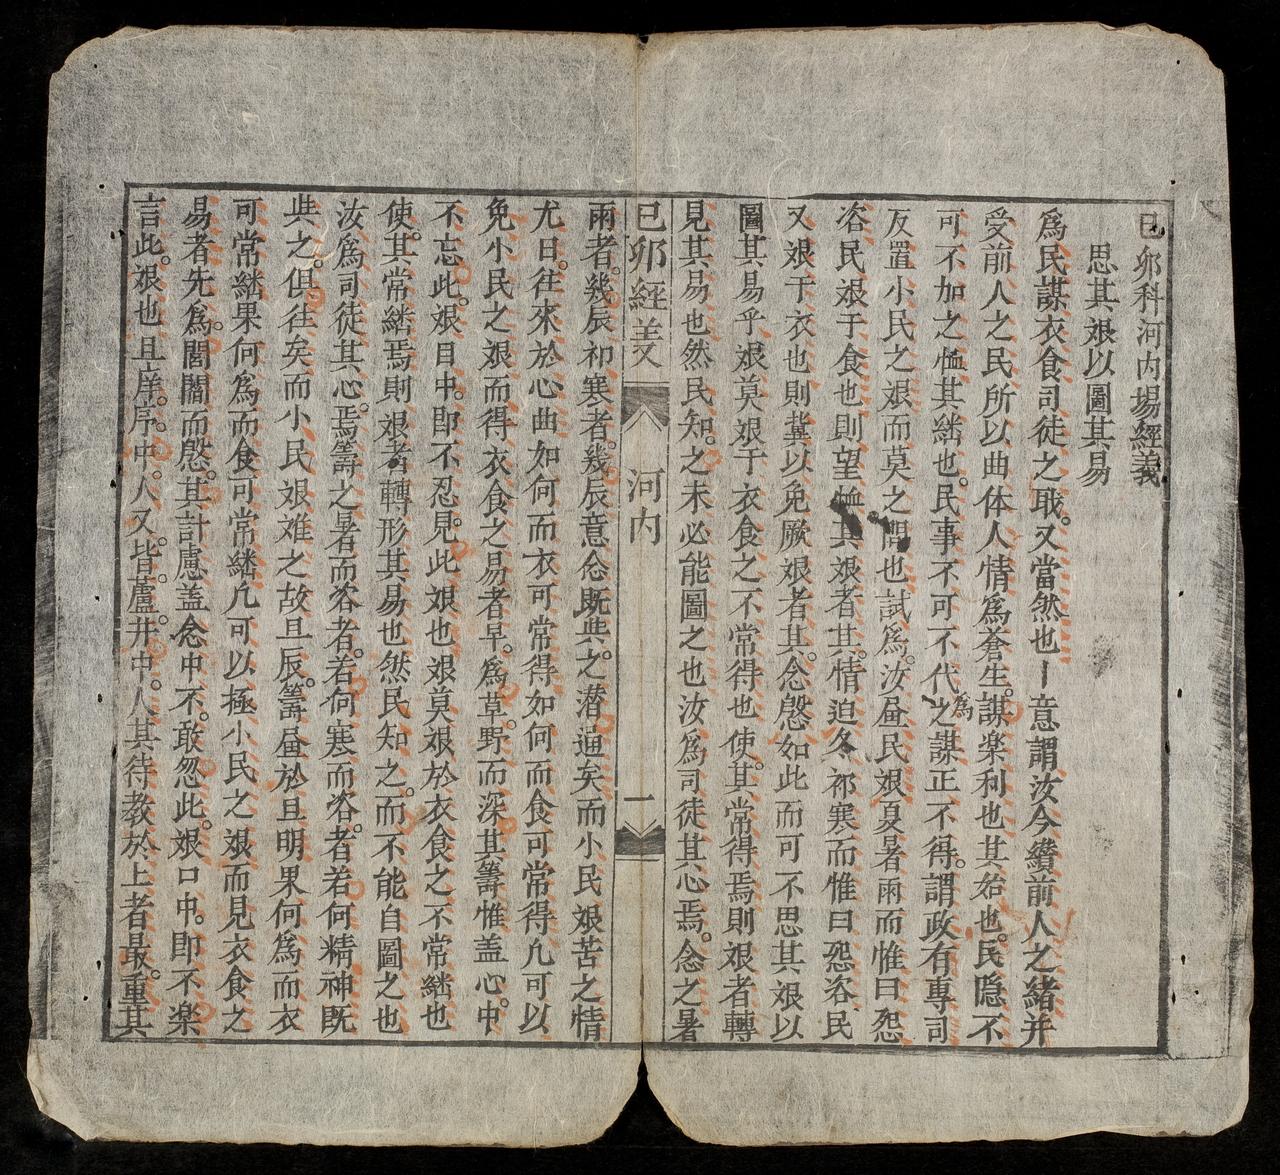 己卯科河内場經義
思其艱以圖其易
爲民謀衣食司徒之職又當然也一意謂汝今纘前人之緒并
受前人之民所以曲体人情爲蒼生謀楽利也其始也民隐不
可不加之恤其継也民事不可不代爲之謀正不得謂政有專司
反置小民之艱而莫之問也試爲汝届民艱夏暑雨而惟曰怨
咨民艱于食也則望恤其艱者其情迫冬祁寒而惟曰怨咨民
又艱于衣也則冀以免厥艱者其念慇如此而可不思其艱以
圖其易乎艱莫艱于衣食之不常得也使其常得焉則艱者轉
見其易也然民知之未必能圖之也汝爲司徒其心焉念之暑
己卯經義 河内 一
雨者幾辰祁寒者幾辰意念既與之潜通矣而小民艱苦之情
尤日往來於心曲如何而衣可常得如何而食可常得凢可以
免小民之艱而得衣食之易者早爲草野而深其籌惟盖心中
不忘此艱目中即不忍見此艱也艱莫艱於衣食之不常継也
使其常継焉則艱者轉形其易也然民知之而不能自圖之也
汝爲司徒其心焉籌之暑而咨者若何寒而咨者若何精神既
與之俱往矣而小民艱难之故旦辰籌届於旦明果何爲而衣
可常継果何爲而食可常継凢可以極小民之艱而見衣食之
易者先爲閭閻而慇其計慮盖念中不敢忽此艱口中即不楽
言此艱也且庠序中人又皆蘆井中人其待教於上者最重其